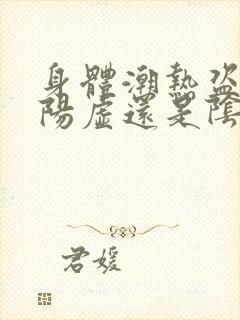 身體潮熱盜
陽虛還是陰
君媛